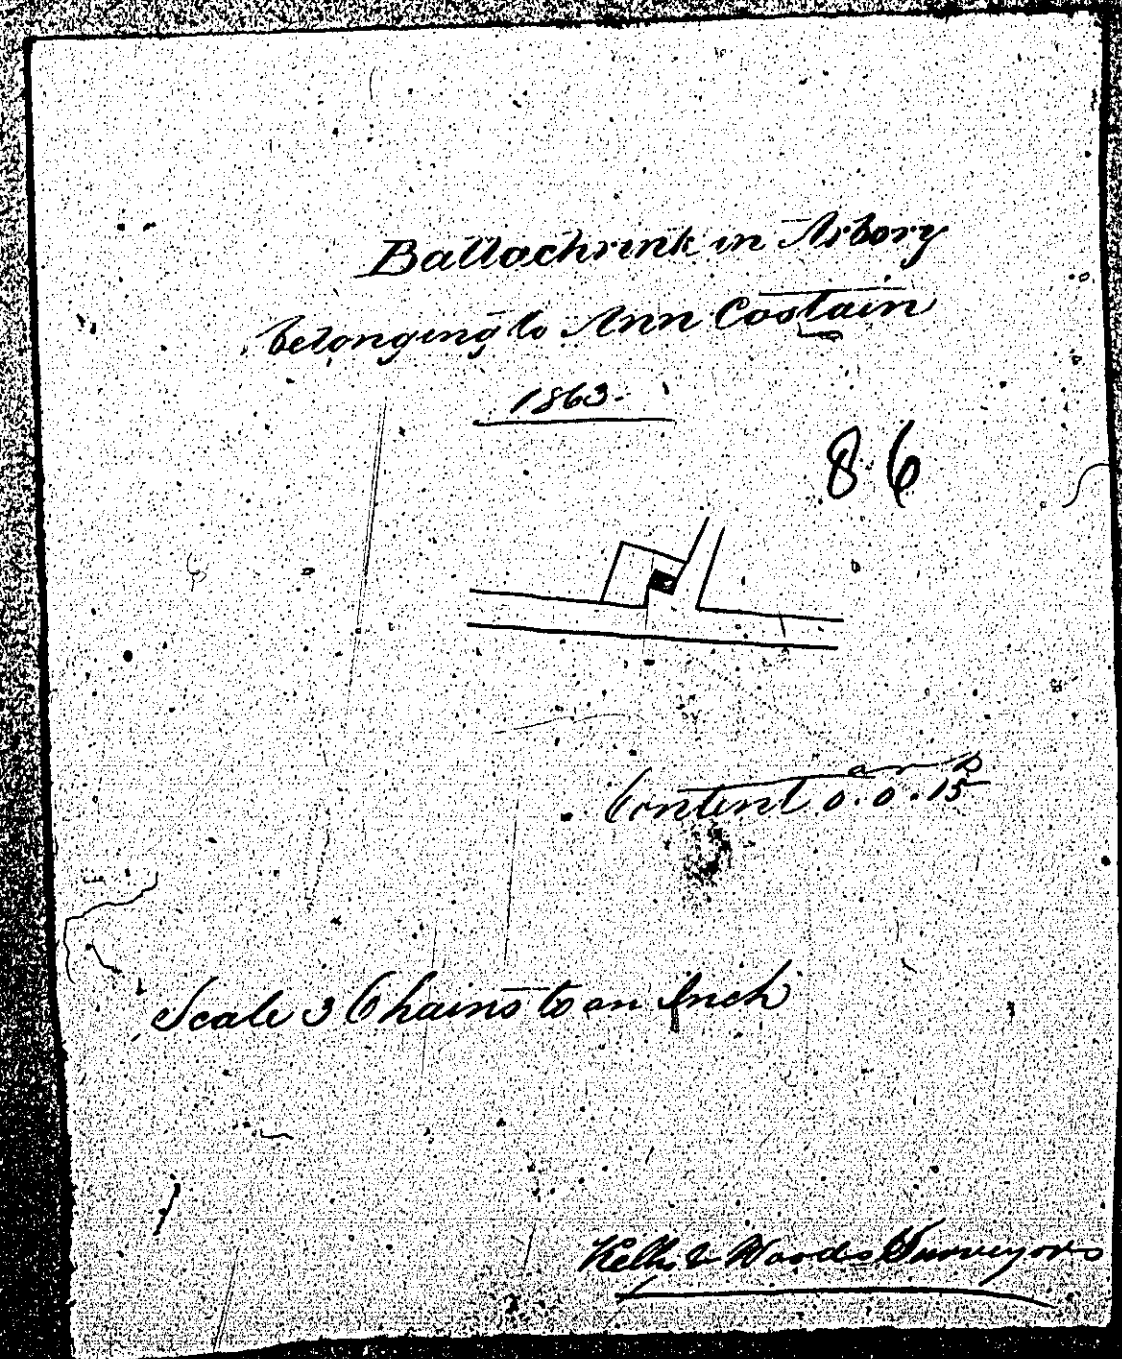 Ballachrink in Arbory
belonging to Ann Costain
1863.
86
a r p
Content 0.0.15
Scale 3 Chains to an Inch
& Woods Surveyors